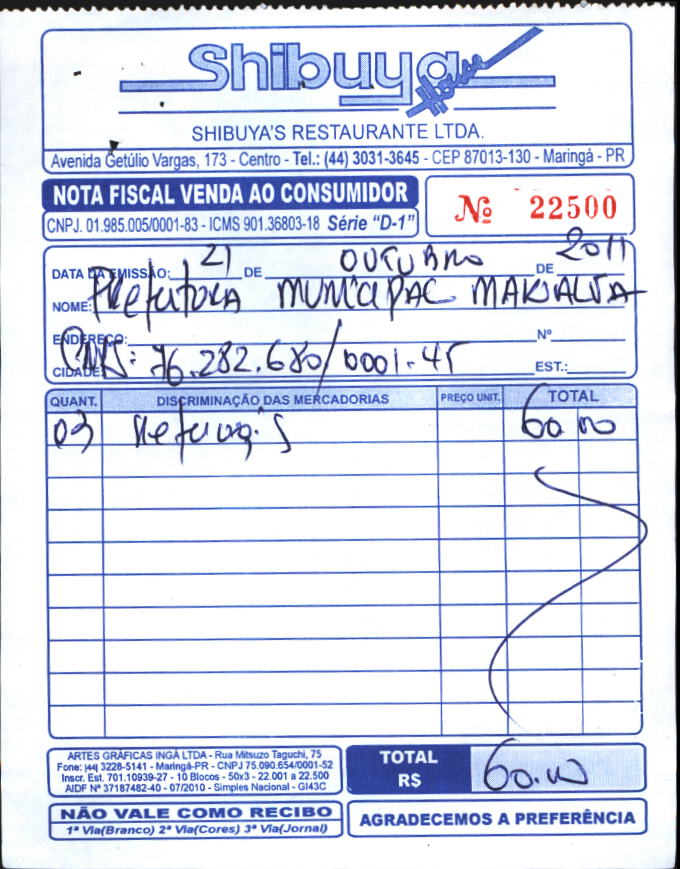 Shibuya House
SHIBUYA'S RESTAURANTE LTDA.
Avenida Getúlio Vargas, 173 - Centro - Tel.: (44) 3031-3645 - CEP 87013-130 - Maringá - PR
NOTA FISCAL VENDA AO CONSUMIDOR
CNPJ. 01.985.005/0001-83 - ICMS 901.36803-18 Série "D-1"
Nº 22500
DATA DA EMISSÃO: 21 DE OUTUBRO DE 2011
NOME: Prefeitura MUNICIPAL MARIALVA
ENDEREÇO: Nº
CIDADE: CNPJ: 76.282.680/0001-45 EST.:
QUANT. DISCRIMINAÇÃO DAS MERCADORIAS PREÇO UNIT. TOTAL
03 Refeições 60 00
ARTES GRÁFICAS INGÁ LTDA - Rua Mitsuzo Taguchi, 75
Fone: (44) 3228-5141 - Maringá-PR - CNPJ 75.090.654/0001-52
Inscr. Est. 701.10939-27 - 10 Blocos - 50x3 - 22.001 a 22.500
AIDF Nº 37187482-40 - 07/2010 - Simples Nacional - GI43C
TOTAL R$ 60.00
NÃO VALE COMO RECIBO
1ª Via(Branco) 2ª Via(Cores) 3ª Via(Jornal)
AGRADECEMOS A PREFERÊNCIA